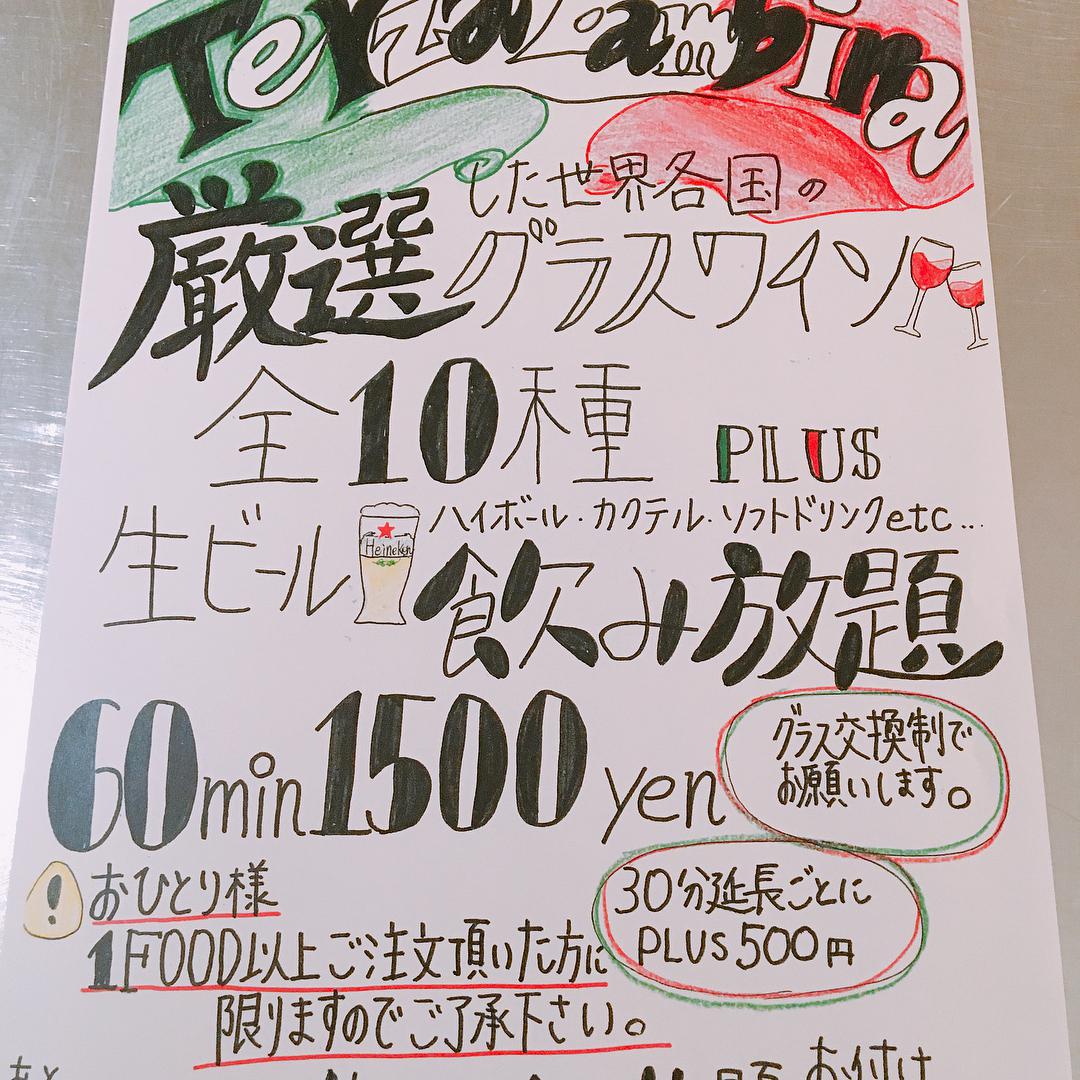 Terza Bambina
厳選した世界各国の
グラスワイン
全10種 PLUS
生ビール Heineken ハイボール・カクテル・ソフトドリンクetc...
飲み放題
60min1500yen
グラス交換制で
お願いします。
! おひとり様
1FOOD以上ご注文頂いた方に
限りますのでご了承下さい。
30分延長ごとに
PLUS500円
お付け